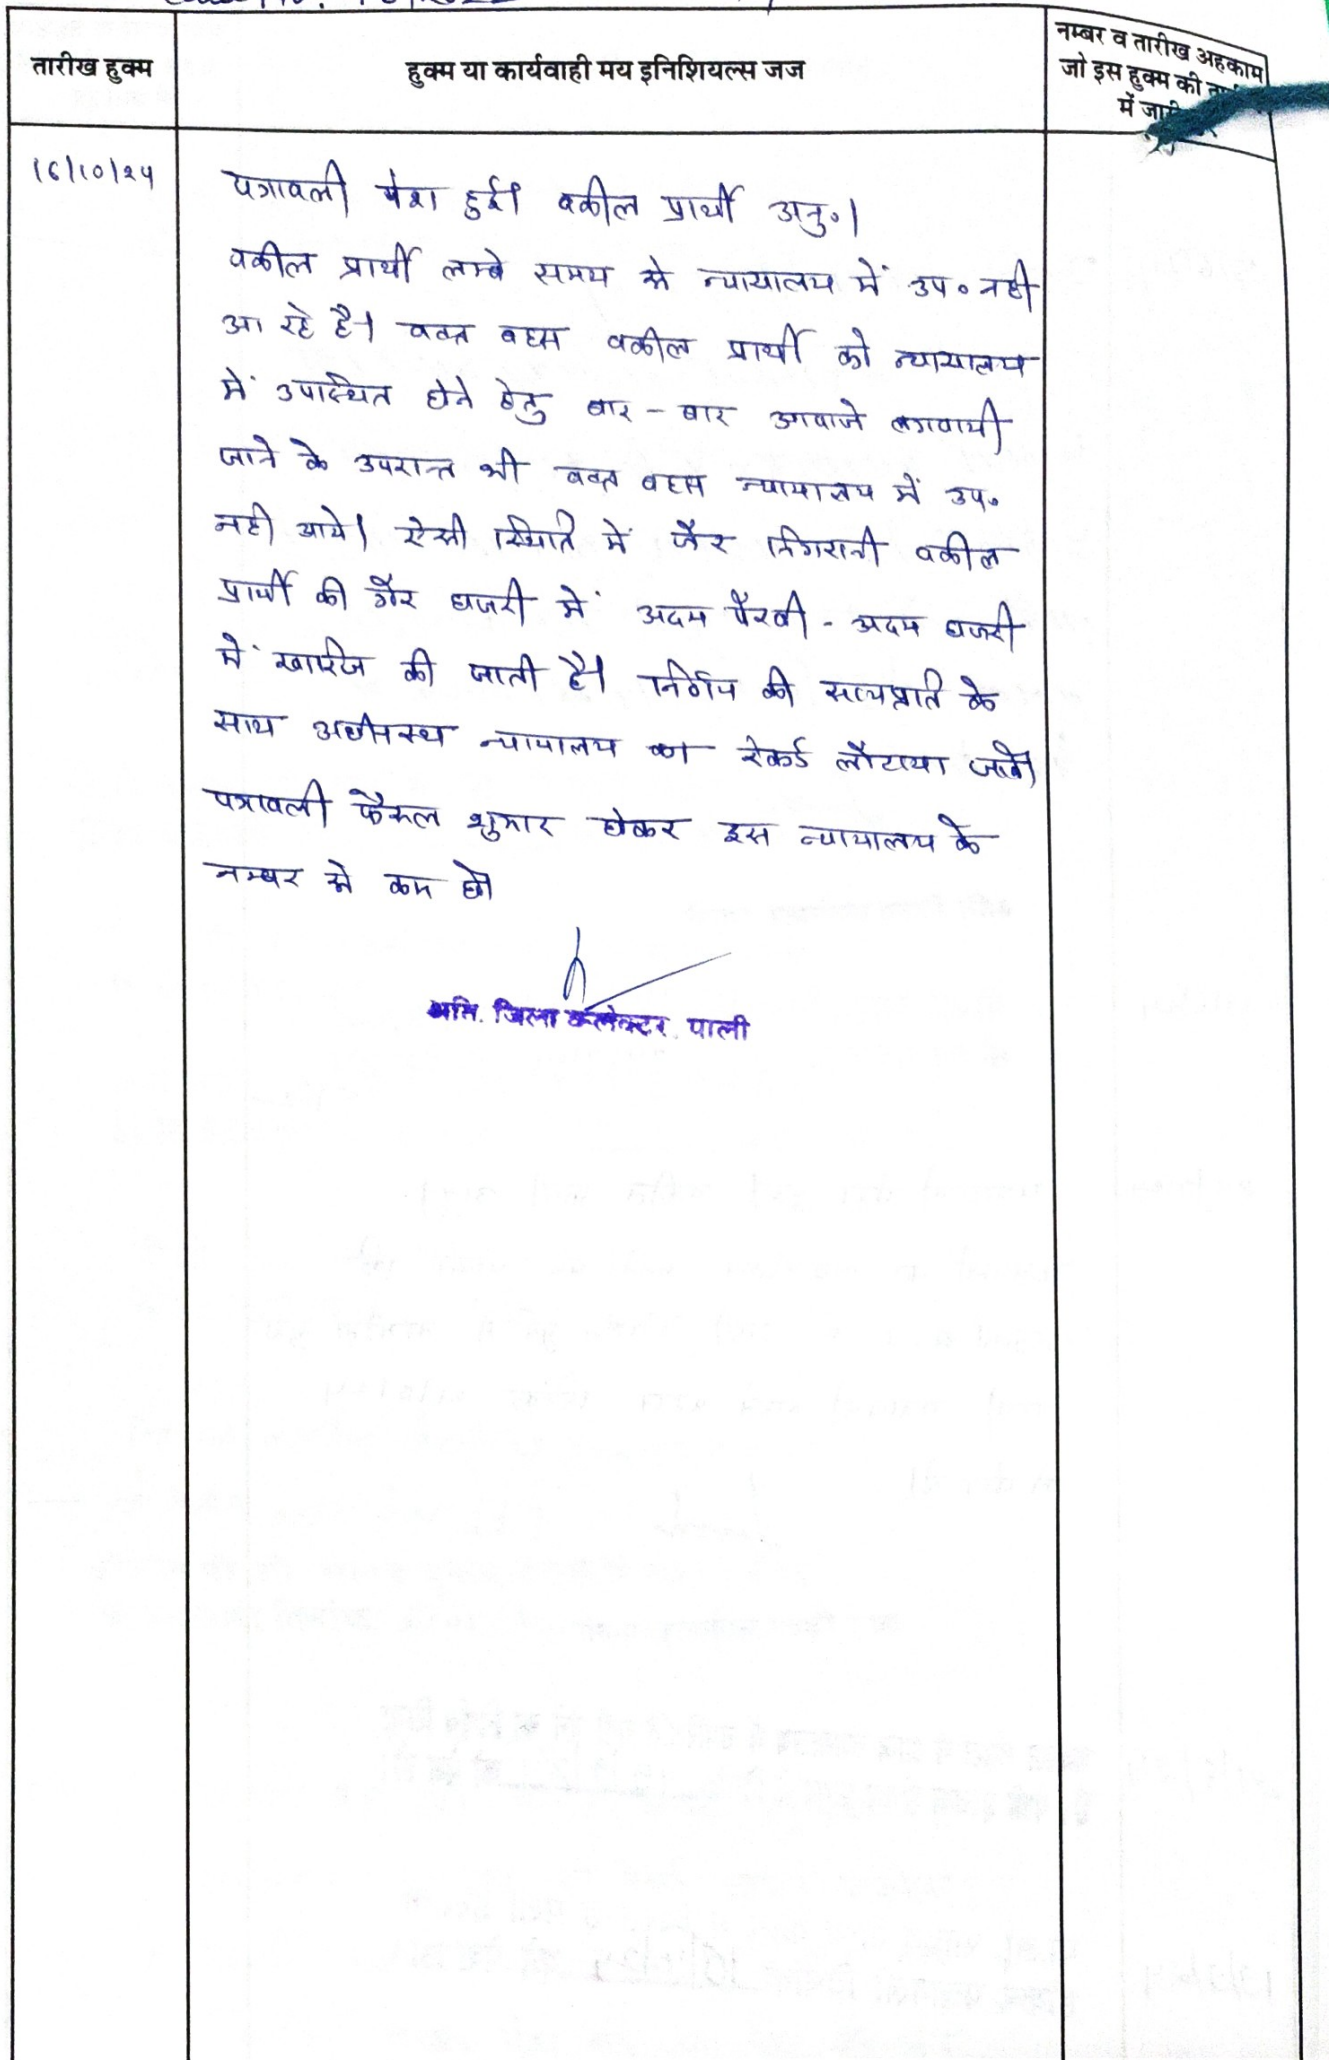 तारीख हुक्म
हुक्म या कार्यवाही मय इनिशियल्स जज
नम्बर व तारीख अहकाम
जो इस हुक्म की
में
16/10/24
पत्रावली पेश हुई। वकील प्रार्थी अनु०।
वकील प्रार्थी लम्बे समय से न्यायालय में उप० नही
आ रहे है। वक्त बहस वकील प्रार्थी को न्यायालय
में उपस्थित होने हेतु बार - बार आवाजे लगवायी
जाने के उपरान्त भी वक्त बहस न्यायालय में उप०
नही आये। ऐसी स्थिति में जैर निगरानी वकील
प्रार्थी की गैर हाजरी में अदम पैरवी - अदम हाजरी
में खारिज की जाती है। निर्णय की सत्यप्रति के
साथ अधीनस्थ न्यायालय का रेकर्ड लौटाया जावे।
पत्रावली फैसल शुमार होकर इस न्यायालय के
नम्बर से कम हो।
अति. जिला कलेक्टर, पाली